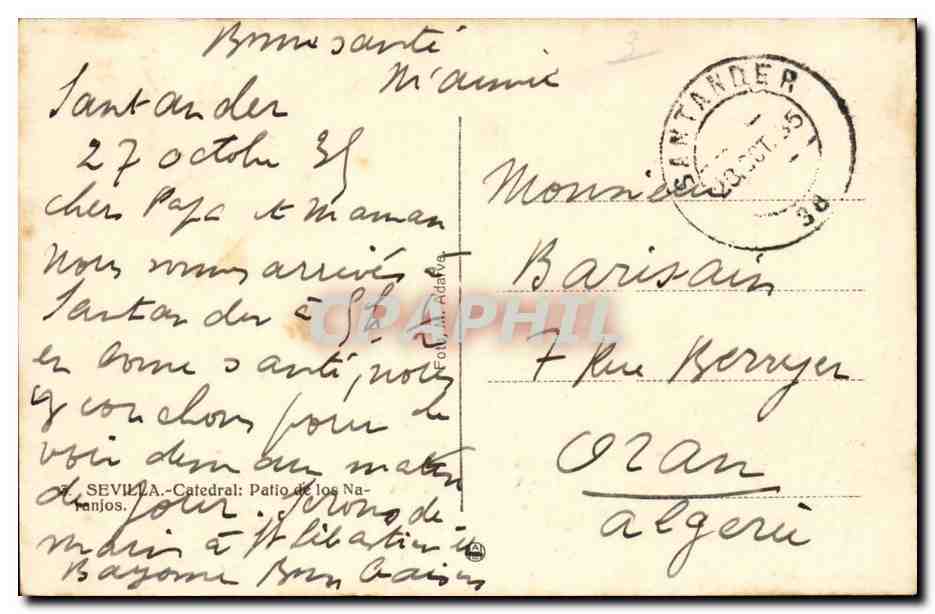 Bonne santé
Mamie
Santander
27 octobre 35
chers Papa et Maman
Nous sommes arrivés à
Santander à 5h
en bonne santé, nous
y couchons pour le
voir demain matin
de jour. Serons de
main à St Sébastien et
Bayonne Bons Baisers
3. SEVILLA.-Catedral: Patio de los Na-
ranjos.
Foto, M. Adarve.
CPAPHIL
SANTANDER
28.OCT.35
Monsieur
Barisain
7 Rue Berryer
Oran
Algérie